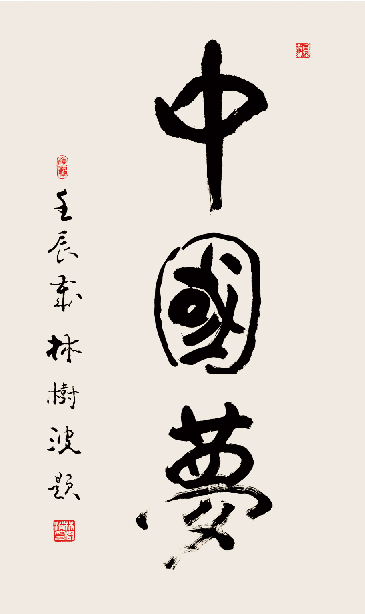 中國夢
壬辰歲林樹波題